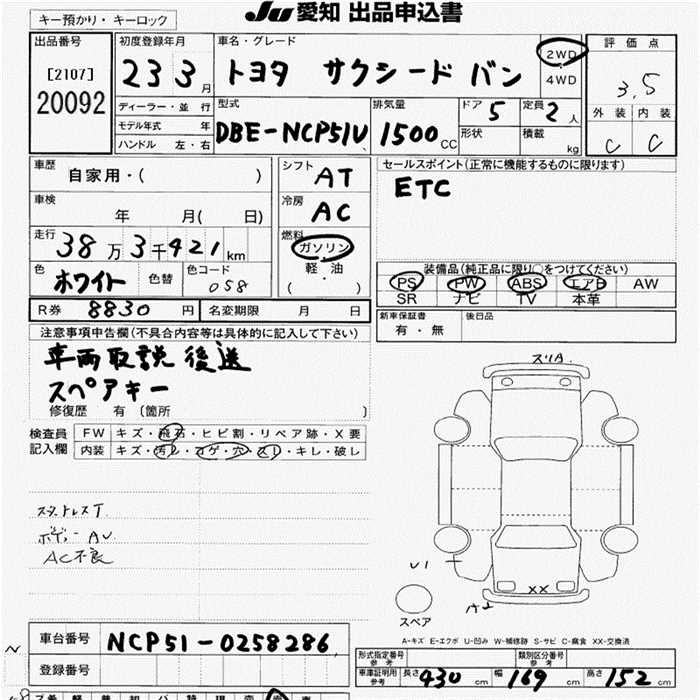 Ju 愛知 出品申込書
キー預かり・キーロック
出品番号
[2107]
20092
初度登録年月
23 3月
ディーラー・並 行
モデル年式 年
ハンドル 左・右
車名・グレード
トヨタ サクシード バン
2WD
4WD
評価点
3.5
外装 内装
C C
型式
DBE-NCP51V
排気量
1500cc
ドア 5
形状
定員 2人
積載 kg
車歴
自家用・( )
車検
年 月( 日)
走行 38万3千421km
色 ホワイト 色替
色コード 058
シフト AT
冷房 AC
燃料
ガソリン
軽・油
( )
セールスポイント(正常に機能するものに限ります)
ETC
装備品(純正品に限り○をつけてください)
PS PW ABS エアB AW
SR ナビ TV 本革
R券 8830円
名変期限 月 日
新車保証書
有・無
後日品
注意事項申告欄(不具合内容等は具体的に記入して下さい)
車両取説 後送
スペアキー
修復歴 有 (箇所 )
検査員
記入欄
FW キズ・飛石・ヒビ割・リペア跡・X要
内装 キズ・汚レ・コゲ・穴・スレ・キレ・破レ
ボディー AU
AC不良
スリA
U1
XX
A2
スペア
A-キズ E-エクボ U-凹み W-補修跡 S-サビ C-腐食 XX-交換済
車台番号 NCP51-0258286
登録番号
形式指定番号
参考
類別区分番号
参考
車庫証明用
参考
長さ 430cm 幅 169cm 高さ 152cm